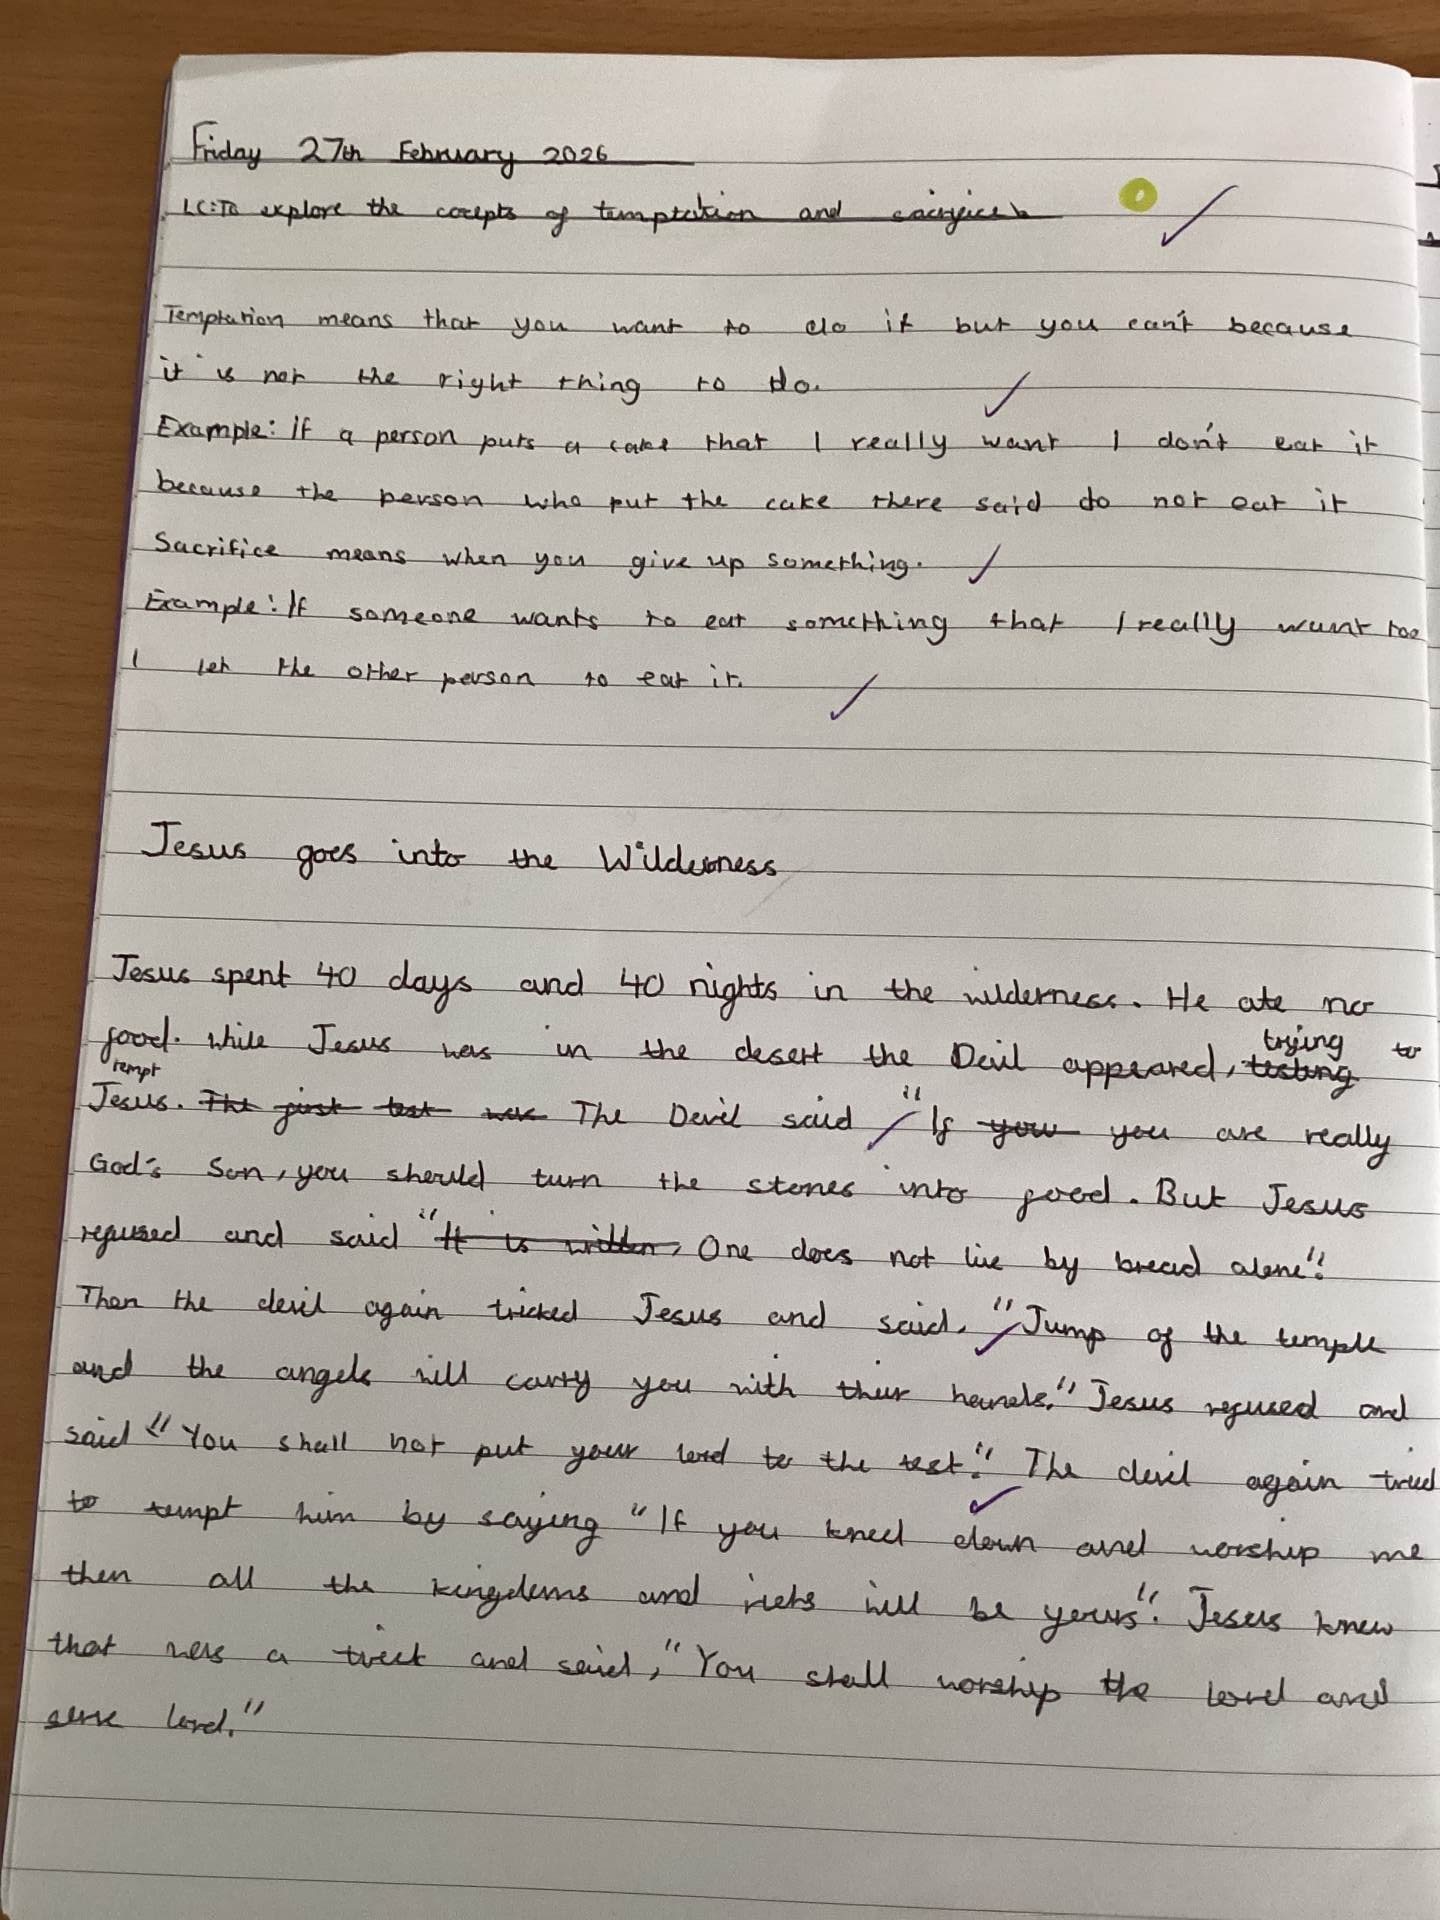 Friday 27th February 2026
LC:To explore the cocepts of temptation and sacrifice
Temptation means that you want to do it but you can't because
it is not the right thing to do.
Example: If a person puts a cake that I really want I don't eat it
because the person who put the cake there said do not eat it
Sacrifice means when you give up something.
Example: If someone wants to eat something that I really want too
I let the other person to eat it.
Jesus goes into the Wilderness
Jesus spent 40 days and 40 nights in the wilderness. He ate no
food. while Jesus was in the desert the Devil appeared, testing trying to
tempt
Jesus. The first test was The Devil said "If you you are really
God's Son, you should turn the stones into food. But Jesus
refused and said "It is written, One does not live by bread alone".
Then the devil again tricked Jesus and said, "Jump of the temple
and the angels will carry you with their hands." Jesus refused and
said "You shall not put your lord to the test". The devil again tried
to tempt him by saying "If you kneel down and worship me
then all the kingdoms and richs will be yours". Jesus knew
that was a trick and said, "You shall worship the lord and
serve lord."